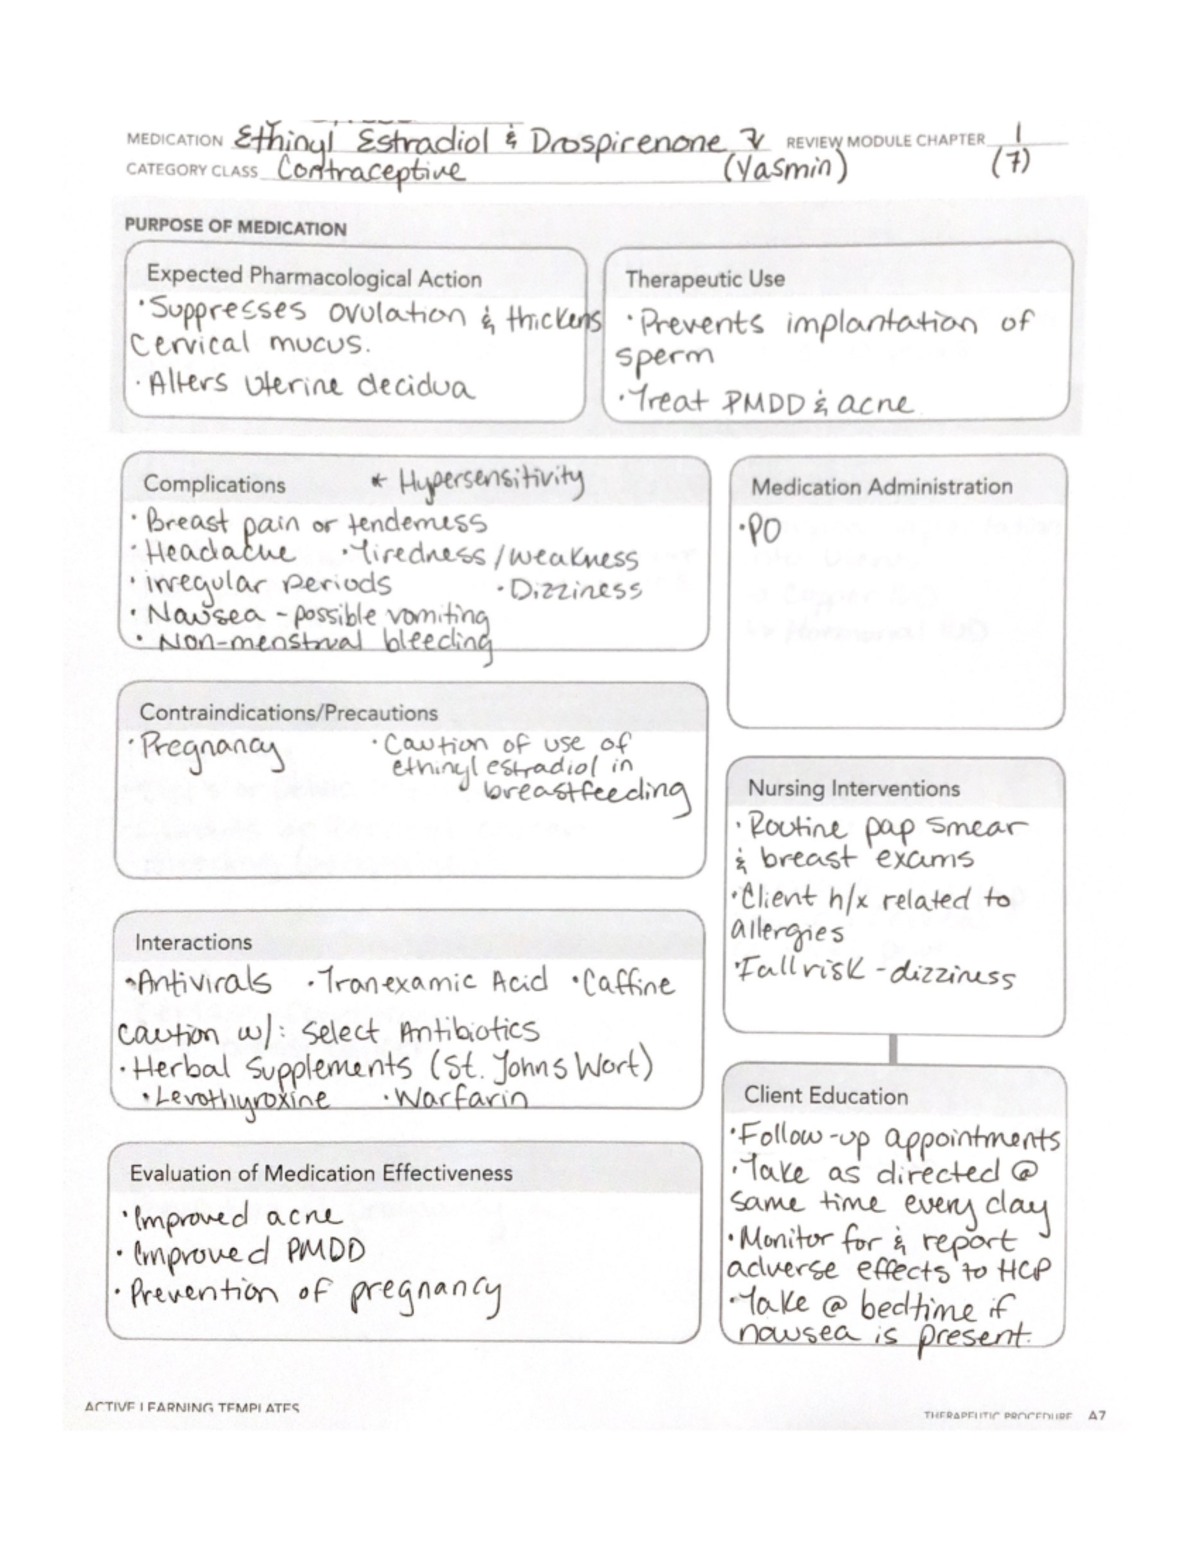 MEDICATION Ethinyl Estradiol & Drospirenone REVIEW MODULE CHAPTER 1
CATEGORY CLASS Contraceptive (Yasmin) (7)
PURPOSE OF MEDICATION
Expected Pharmacological Action
·Suppresses ovulation & thickens
cervical mucus.
·Alters uterine decidua
Therapeutic Use
·Prevents implantation of
sperm
·Treat PMDD & acne
Complications * Hypersensitivity
·Breast pain or tenderness
·Headache ·Tiredness/weakness
·irregular periods ·Dizziness
·Nausea - possible vomiting
·Non-menstrual bleeding
Medication Administration
·PO
Contraindications/Precautions
·Pregnancy ·Caution of use of
ethinyl estradiol in
breastfeeding
Nursing Interventions
·Routine pap smear
& breast exams
·Client h/x related to
allergies
·Fall risk - dizziness
Interactions
·Antivirals ·Tranexamic Acid ·Caffine
caution w/: Select Antibiotics
·Herbal Supplements (St. Johns Wort)
·Levothyroxine ·Warfarin
Client Education
·Follow-up appointments
·Take as directed @
same time every day
·Monitor for & report
adverse effects to HCP
·Take @ bedtime if
nausea is present.
Evaluation of Medication Effectiveness
·Improved acne
·Improved PMDD
·Prevention of pregnancy
ACTIVE LEARNING TEMPLATES THERAPEUTIC PROCEDURE A7